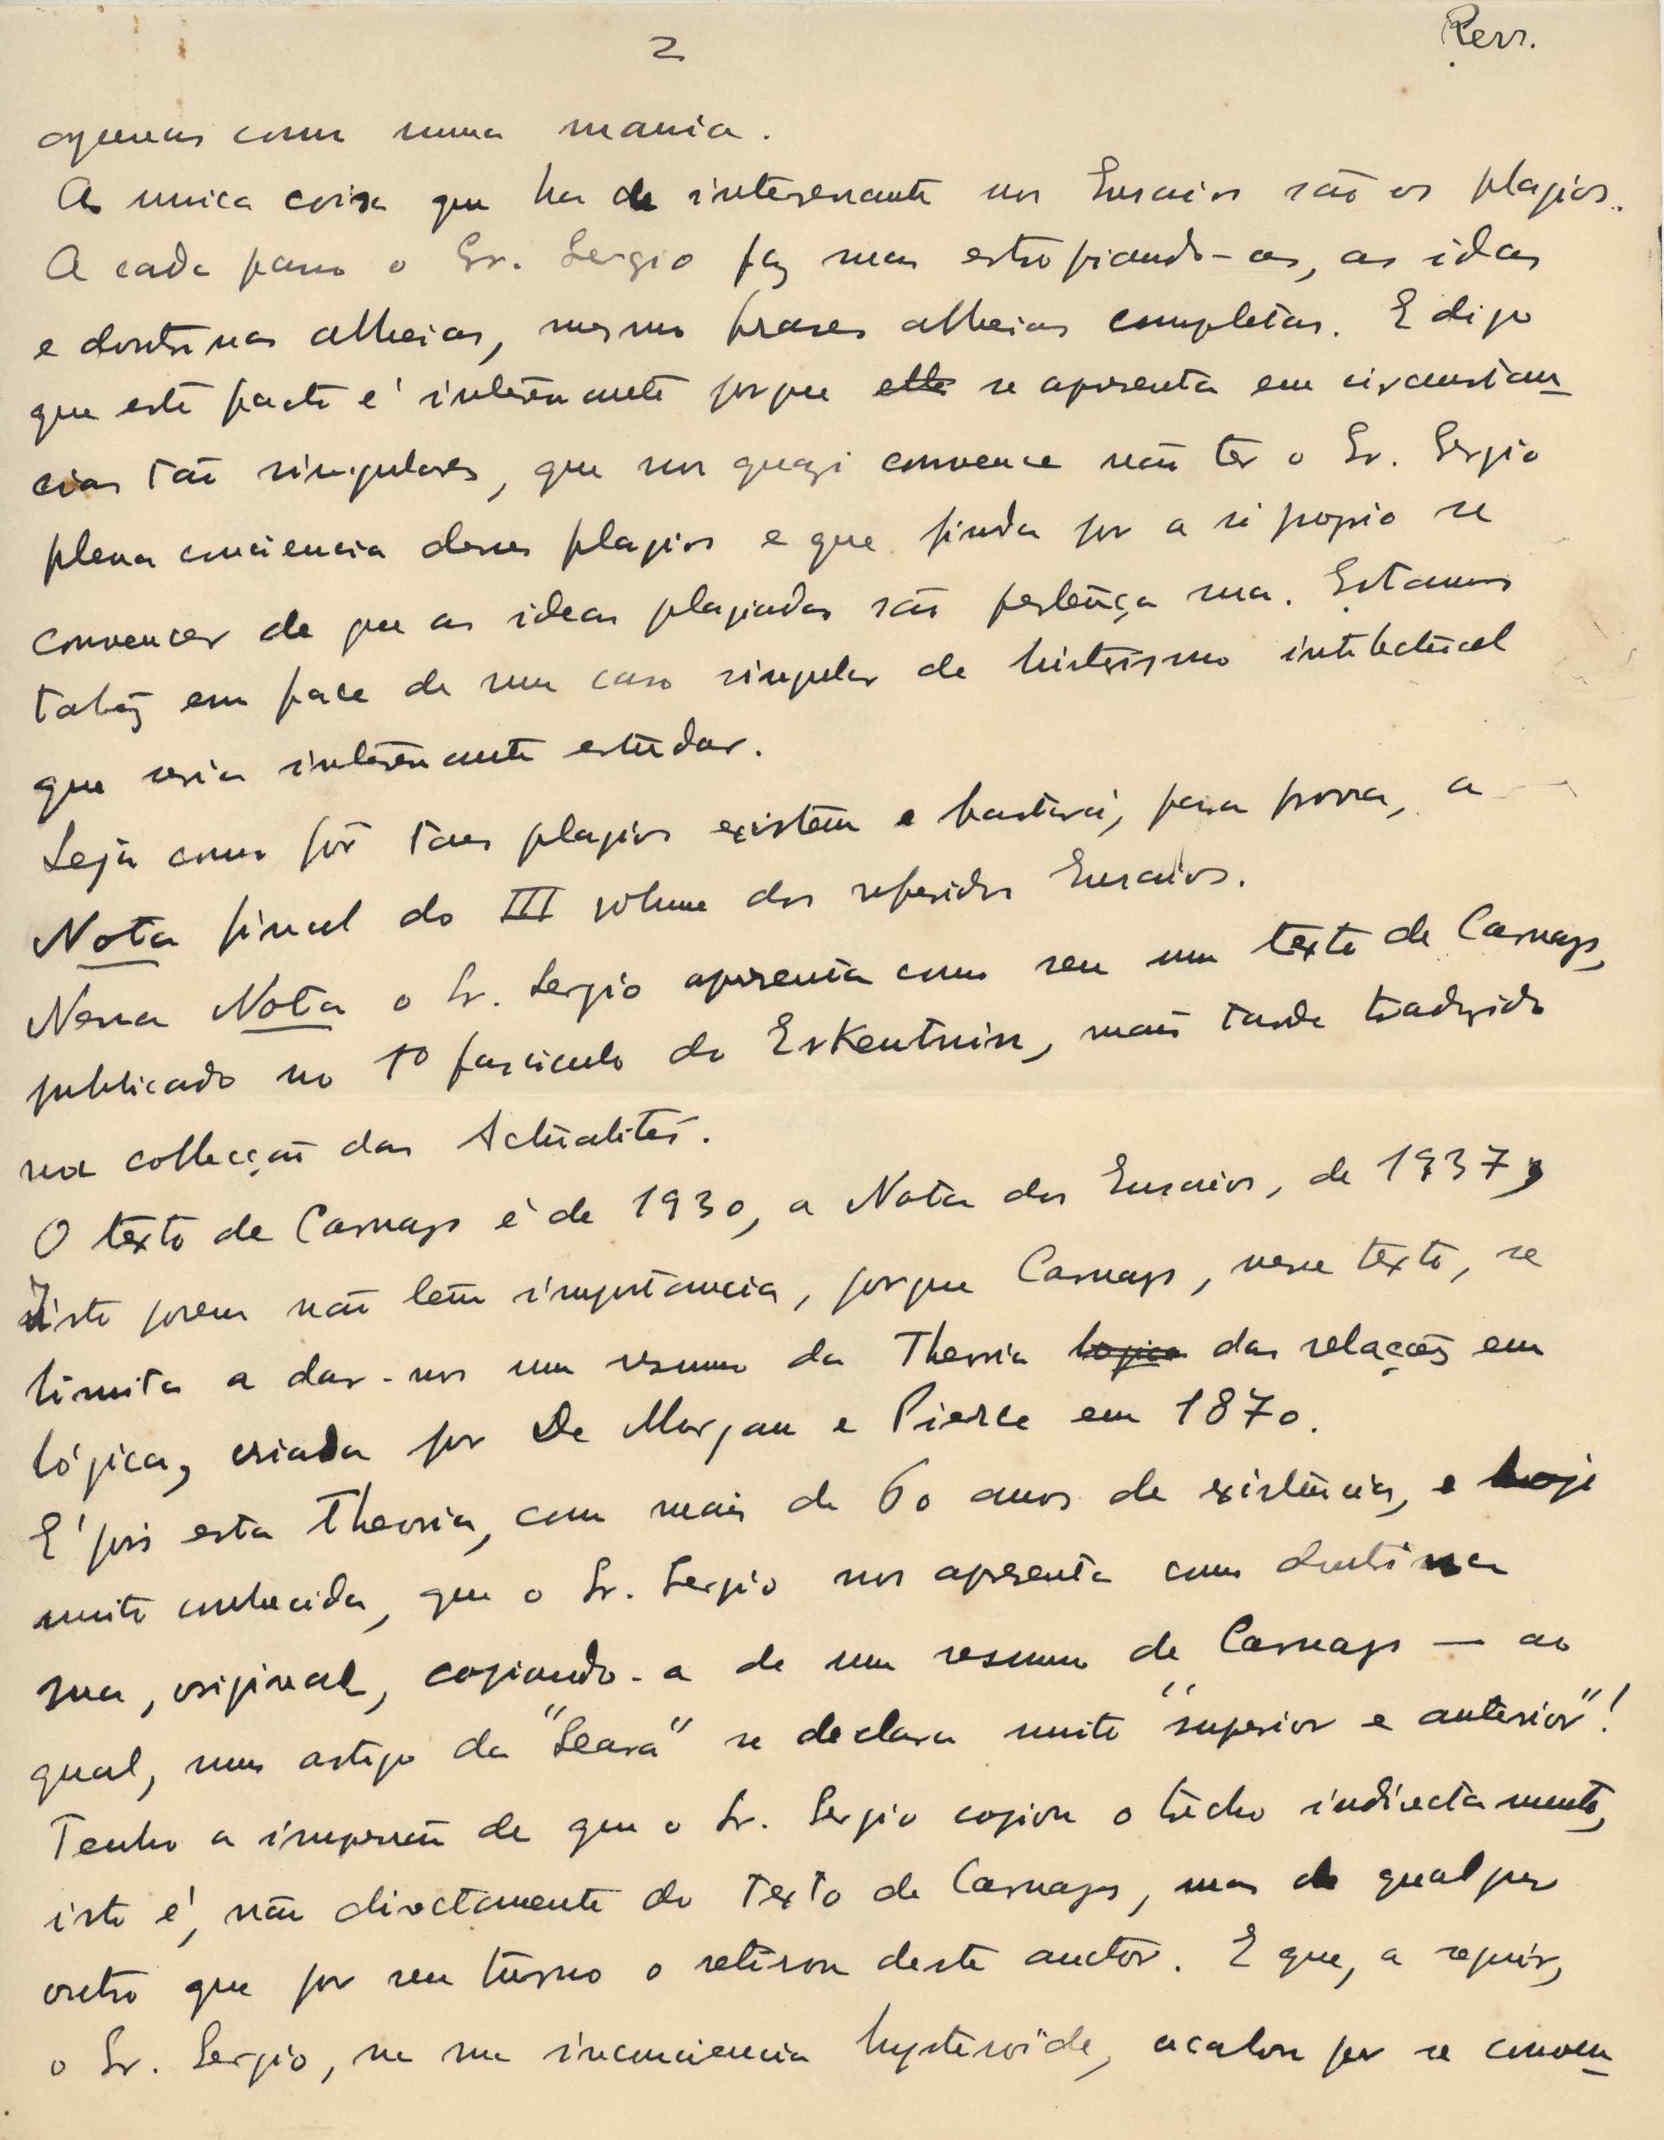 2
Revr.
apenas como uma mania.
A unica coisa que ha de interessante nos Ensaios são os plagios.
A cada passo o Sr. Sergio faz suas estropiando-as, as ideas
e doutrinas alheias, mesmo frases alheias completas. E digo
que esta parte é interessante porque ella se apresenta em circunstan-
cias tão singulares, que nos quazi convence não ter o Sr. Sergio
plena conciencia desses plagios e que finda por a si proprio se
convencer de que as ideas plagiadas são pertença sua. Estamos
talvez em face de um caso singular de histerismo intelectual
que seria interessante estudar.
Seja como fôr taes plagios existem e bastará, para prova, a
Nota final do III volume dos referidos Ensaios.
Nessa Nota o Sr. Sergio apresenta como seu um texto de Carnap,
publicado no 1º fasciculo do Erkentniss, mais tarde traduzido
na collecção das Actualités.
O texto de Carnap é de 1930, a Nota dos Ensaios, de 1937;
isto porem não tem importancia, porque Carnap, nesse texto, se
limita a dar-nos um resumo da Theoria logica das relações em
lógica, criada por De Morgan e Pierce em 1870.
E' pois esta Theoria, com mais de 60 anos de existência, e hoje
muito conhecida, que o Sr. Sergio nos apresenta como doutrina
sua, original, copiando-a de um resumo de Carnap — ao
qual, num artigo da "Seara" se declara muito "superior e anterior"!
Tenho a impressão de que o Sr. Sergio copiou o trecho indirectamente,
isto é, não directamente do texto de Carnap, mas de qualquer
outro que por seu turno o retirou deste auctor. E que, a seguir,
o Sr. Sergio, na sua inconciencia hysteroide, acabou por se conven-